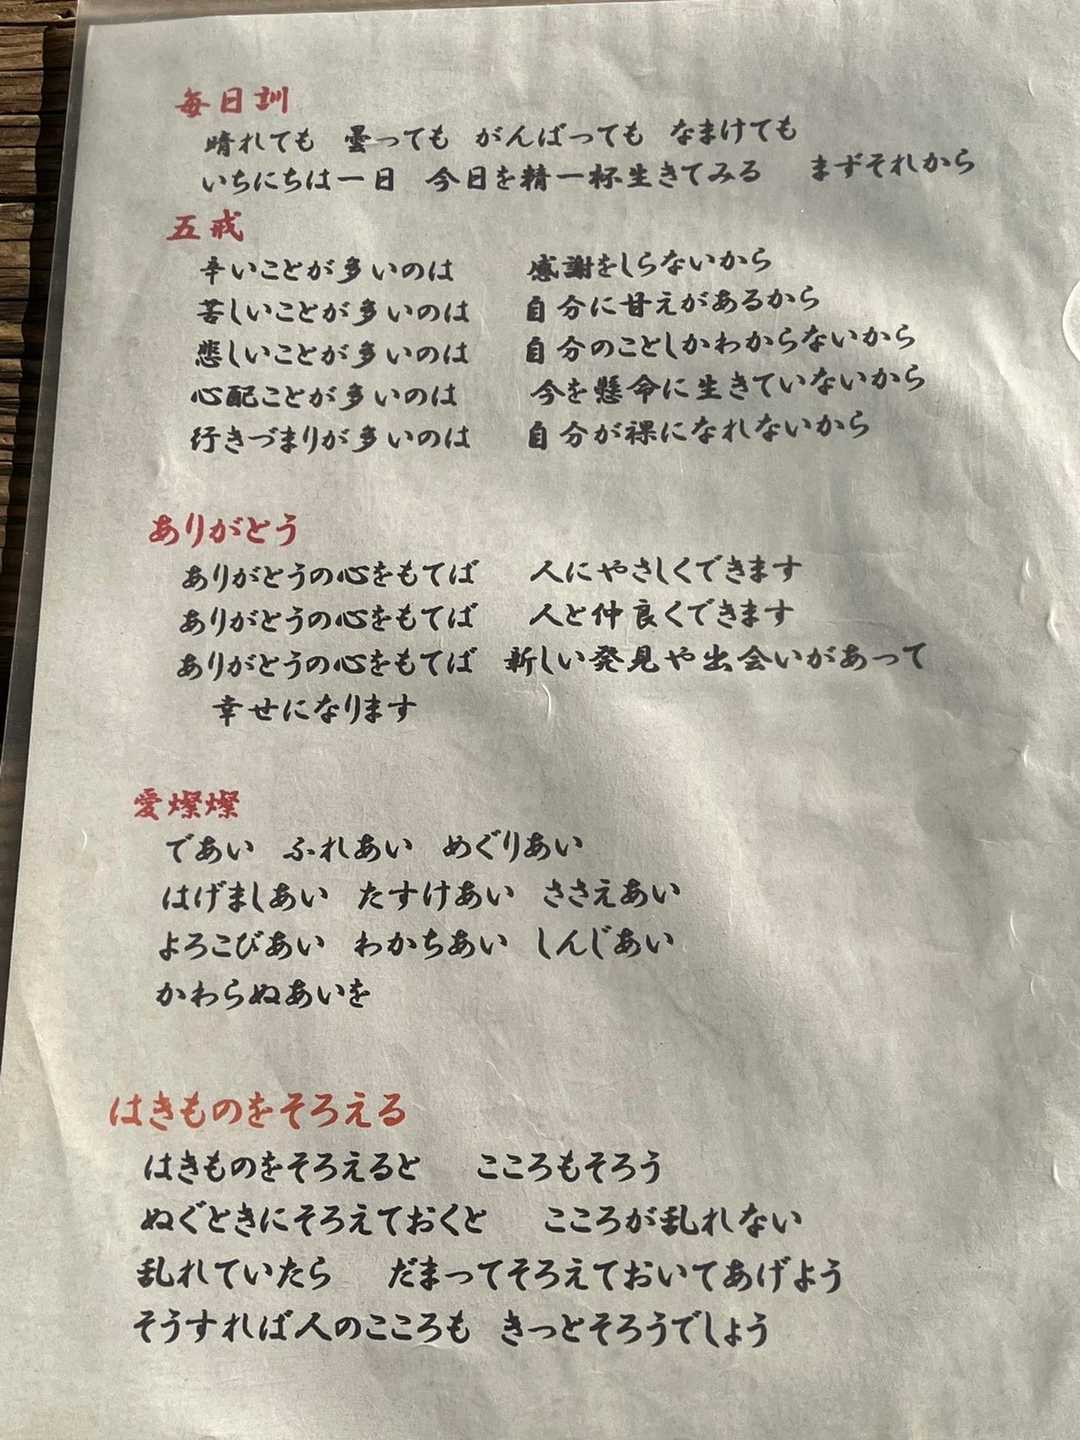 毎日訓
晴れても 曇っても がんばっても なまけても
いちにちは一日 今日を精一杯生きてみる まずそれから
五戒
辛いことが多いのは 感謝をしらないから
苦しいことが多いのは 自分に甘えがあるから
悲しいことが多いのは 自分のことしかわからないから
心配ことが多いのは 今を懸命に生きていないから
行きづまりが多いのは 自分が裸になれないから
ありがとう
ありがとうの心をもてば 人にやさしくできます
ありがとうの心をもてば 人と仲良くできます
ありがとうの心をもてば 新しい発見や出会いがあって
幸せになります
愛燦燦
であい ふれあい めぐりあい
はげましあい たすけあい ささえあい
よろこびあい わかちあい しんじあい
かわらぬあいを
はきものをそろえる
はきものをそろえると こころもそろう
ぬぐときにそろえておくと こころが乱れない
乱れていたら だまってそろえておいてあげよう
そうすれば人のこころも きっとそろうでしょう